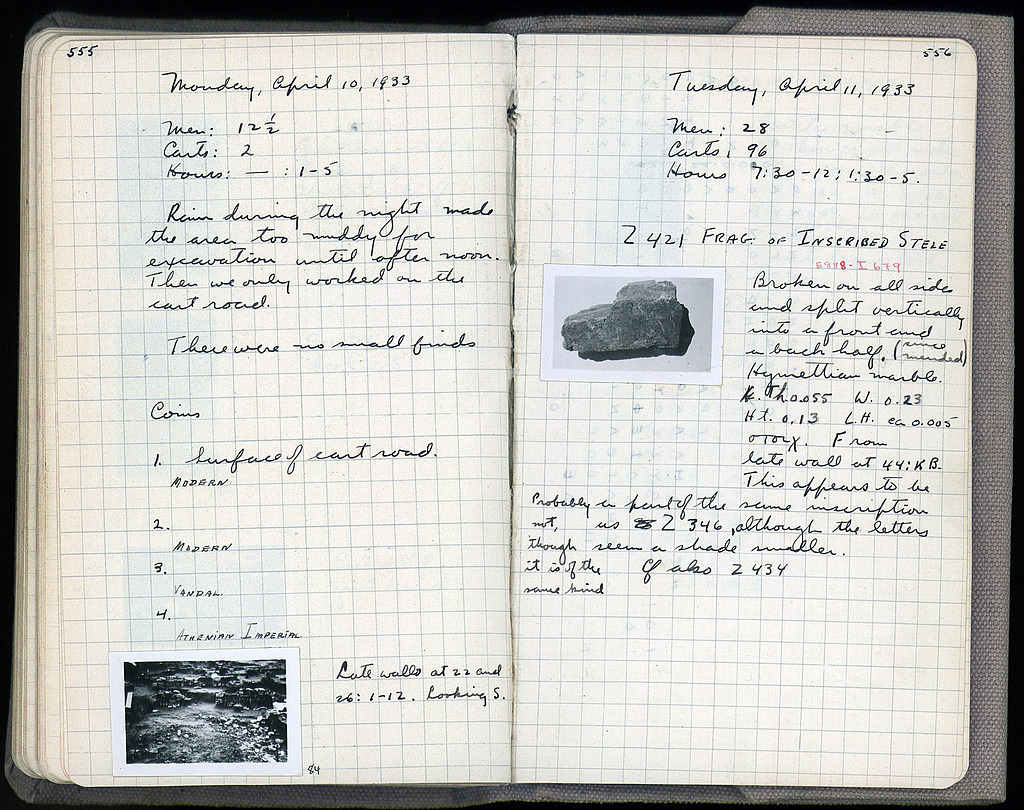 555
Monday, April 10, 1933
Men: 12 ½
Carts: 2
Hours: — : 1-5
Rain during the night made
the area too muddy for
excavation until after noon.
Then we only worked on the
cart road.
There were no small finds
Coins
1. Surface of cart road.
MODERN
2.
MODERN
3.
VANDAL.
4.
ATHENIAN IMPERIAL
Late walls at 22 and
26: 1-12. Looking S.
84
556
Tuesday, April 11, 1933
Men: 28
Carts, 96
Hours 7:30-12; 1:30-5.
Z 421 FRAG. OF INSCRIBED STELE
I 679
Broken on all sides
and split vertically
into a front and
a back half. (since mended)
Hymettian marble.
Th. 0.055 W. 0.23
Ht. 0.13 L.H. ca 0.005
στοιχ. From
late wall at 44:KB.
This appears to be
a part of the same inscription
as Z 346, although the letters
seem a shade smaller.
Cf also Z 434
Probably
not,
though
it is of the
same kind